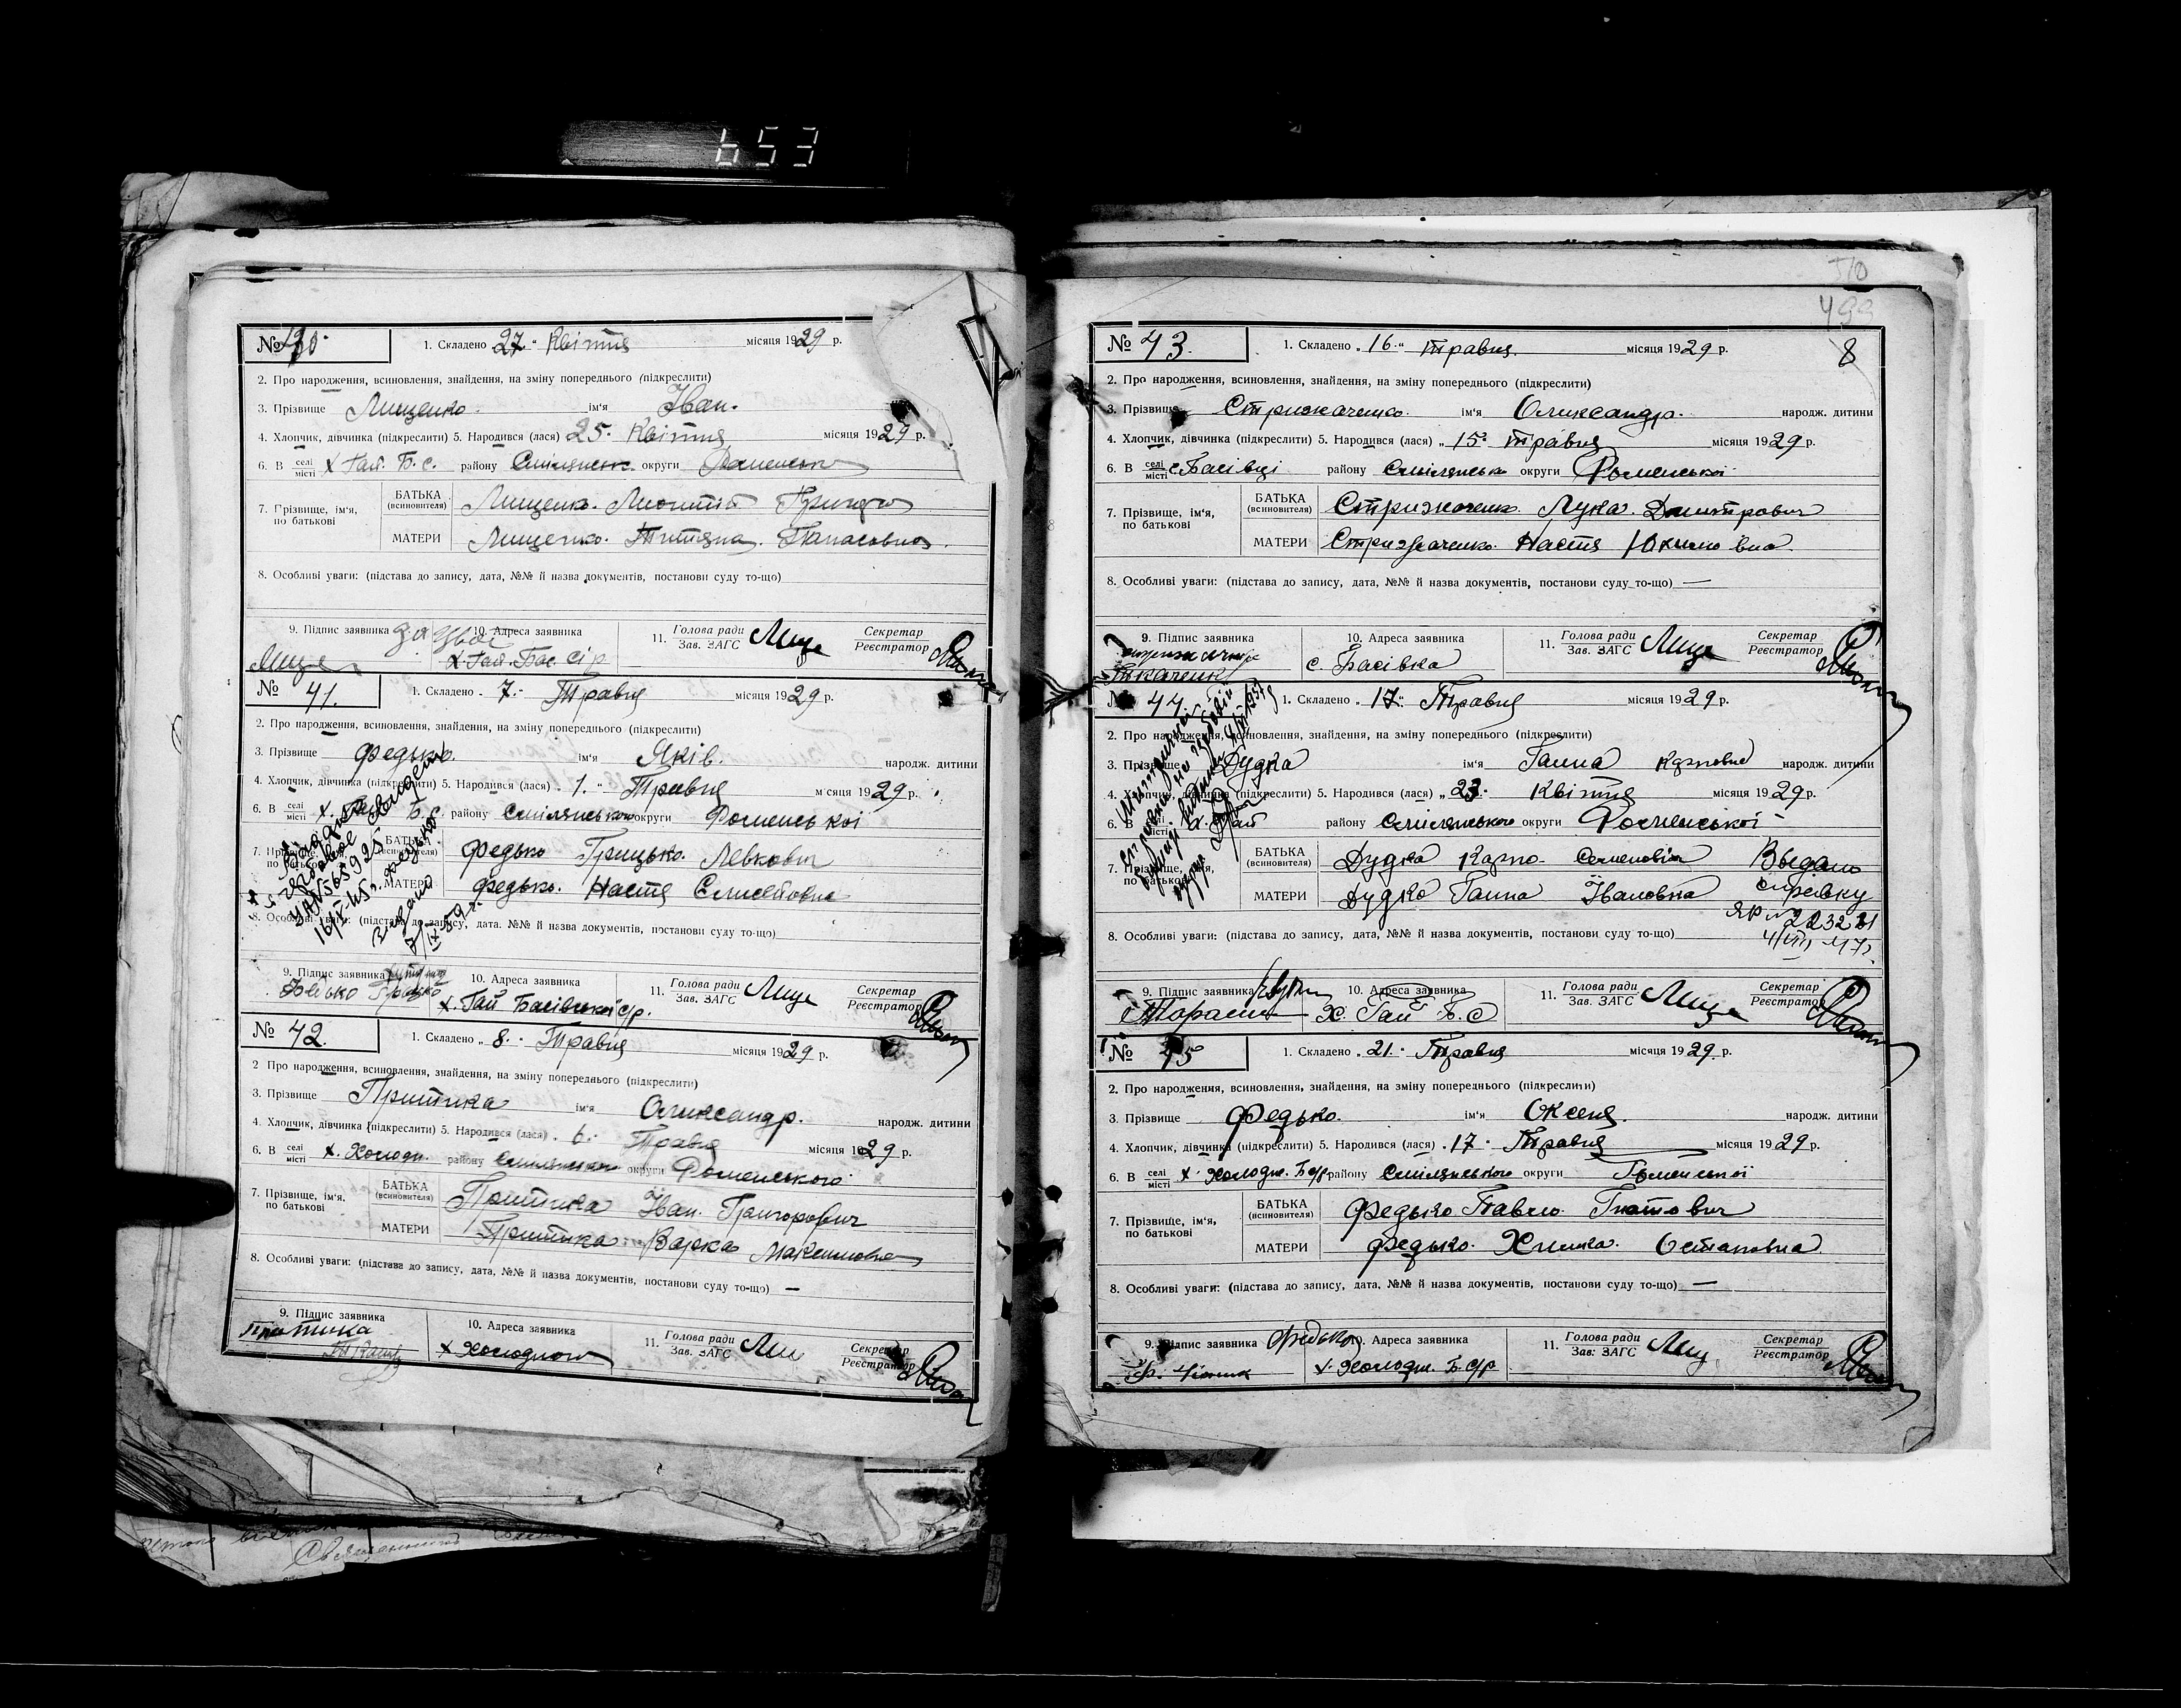 653
№ 40.
1. Складено 27 Квітня місяця 1929 р.
2. Про народження, всиновлення, знайдення, на зміну попереднього (підкреслити)
3. Прізвище Лищенко ім'я Іван.
4. Хлопчик, дівчинка (підкреслити) 5. Народився (лася) 25. Квітня місяця 1929 р.
6. В селі місті х Гай. Б. с. району Смілянськ округи Роменськ
7. Прізвище, ім'я, по батькові
БАТЬКА (всиновителя) Лищенко.
МАТЕРИ Лищенко. Тетяна. Панасовна.
8. Особливі уваги: (підстава до запису, дата, №№ й назва документів, постанови суду то-що)
9. Підпис заявника 10. Адреса заявника х. Гай. Бас. сір 11. Голова ради Зав. ЗАГС Лище Секретар Реєстратор
№ 41.
1. Складено 7. Травня місяця 1929 р.
2. Про народження, всиновлення, знайдення, на зміну попереднього (підкреслити)
3. Прізвище Федько. ім'я Яків. народж. дитини
4. Хлопчик, дівчинка (підкреслити) 5. Народився (лася) 1. Травня місяця 1929 р.
6. В селі місті х. Гай Б. с. району Смілянського округи Роменської
7. Прізвище, ім'я, по батькові
БАТЬКА (всиновителя) Федько Грицько. Левкович
МАТЕРИ Федько. Настя
8. Особливі уваги: (підстава до запису, дата. №№ й назва документів, постанови суду то-що)
16/X-45 р.
9. Підпис заявника Федько Грицько 10. Адреса заявника х. Гай Басівської с/р. 11. Голова ради Зав. ЗАГС Лище Секретар Реєстратор
№ 42.
1. Складено „ 8. Травня місяця 1929 р.
2 Про народження, всиновлення, знайдення, на зміну попереднього (підкреслити)
3. Прізвище Притика ім'я Олександр. народж. дитини
4. Хлопчик, дівчинка (підкреслити) 5. Народився (лася) 6. Травня місяця 1929 р.
6. В селі місті х. Холодн. району Смілянського округи Роменського
7. Прізвище, ім'я, по батькові
БАТЬКА (всиновителя) Притика Іван. Григорович
МАТЕРИ Притика Варка Максимовна
8. Особливі уваги: (підстава до запису, дата, №№ й назва документів, постанови суду то-що) —
9. Підпис заявника Притика 10. Адреса заявника х Холодного 11. Голова ради Зав. ЗАГС Лищ Секретар Реєстратор
510
499
8
№ 43.
1. Складено „ 16. “ травня. місяця 1929 р.
2. Про народження, всиновлення, знайдення, на зміну попереднього (підкреслити)
3. Прізвище Стрижаченко. ім'я Олександр. народж. дитини
4. Хлопчик, дівчинка (підкреслити) 5. Народився (лася) „ 15. травня місяця 1929 р.
6. В селі місті с Басівці району Смілянсько округи Роменської
7. Прізвище, ім'я, по батькові
БАТЬКА (всиновителя) Стрижаченко. Лука. Дмитрович
МАТЕРИ Стрижаченко. Настя Юхимовна.
8. Особливі уваги: (підстава до запису, дата, №№ й назва документів, постанови суду то-що) —
9. Підпис заявника 10. Адреса заявника с. Басівка 11. Голова ради Зав. ЗАГС Лище Секретар Реєстратор
№ 44.
1. Складено „ 17. “ Травня місяця 1929 р.
2. Про народження, всиновлення, знайдення, на зміну попереднього (підкреслити)
3. Прізвище Дудка ім'я Ганна Карповна народж. дитини
4. Хлопчик, дівчинка (підкреслити) 5. Народився (лася) „ 23. Квітня місяця 1929 р.
6. В селі місті х. Гай району Смілянського округи Роменської
7. Прізвище, ім'я, по батькові
БАТЬКА (всиновителя) Дудка Карпо Семенович
МАТЕРИ Дудка Ганна Івановна
Выдано справку
8. Особливі уваги: (підстава до запису, дата, №№ й назва документів, постанови суду то-що)
9. Підпис заявника 10. Адреса заявника Х. Гай Б. с 11. Голова ради Зав. ЗАГС Лище Секретар Реєстратор
№ 45
1. Складено „ 21. Травня місяця 1929 р.
2. Про народження, всиновлення, знайдення, на зміну попереднього (підкреслити)
3. Прізвище Федько. ім'я Оксеня. народж. дитини
4. Хлопчик, дівчинка (підкреслити) 5. Народився (лася) „ 17. Травня місяця 1929 р.
6. В селі місті х. Холодн. Б с/р району Смілянського округи Роменської
7. Прізвище, ім'я, по батькові
БАТЬКА (всиновителя) Федько Павло. Гнатович
МАТЕРИ Федько. Химка. Остаповна.
8. Особливі уваги: (підстава до запису, дата, №№ й назва документів, постанови суду то-що) —
9. Підпис заявника Федько 10. Адреса заявника х. Холодн. Б. с/р 11. Голова ради Зав. ЗАГС Лищ Секретар Реєстратор